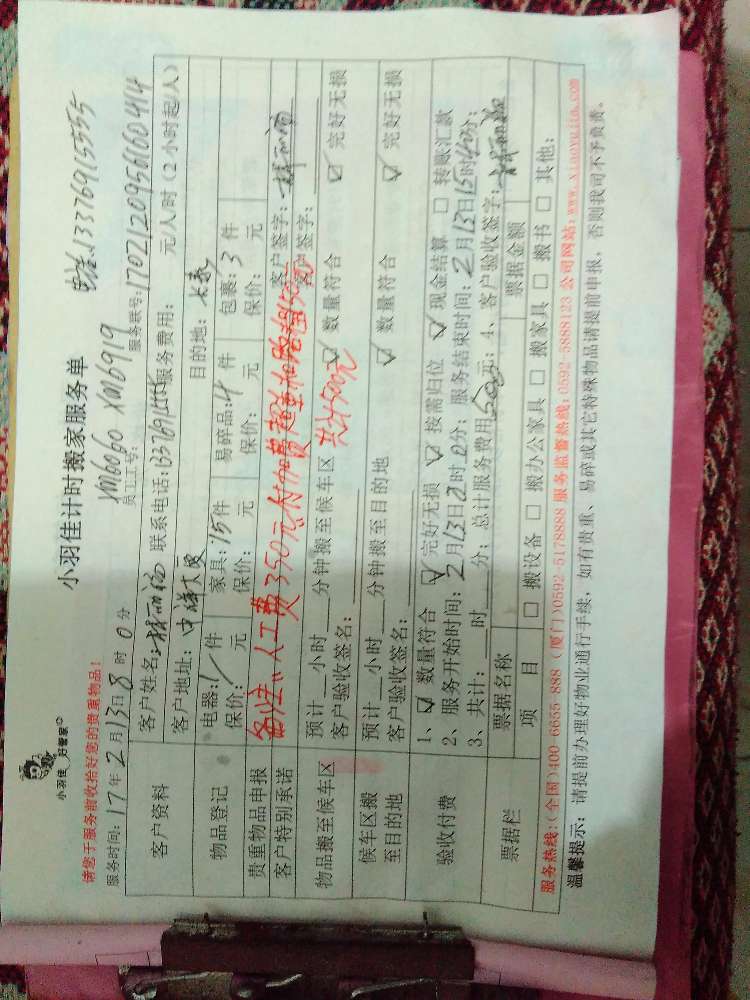 小羽佳 好管家
小羽佳计时搬家服务单
电话:13376915555
请您于服务前收拾好您的贵重物品!
XM6060 XM6919
服务时间:17年2月13日8时0分 员工工号: 服务账号:1702120956160414
客户资料 客户姓名: 联系电话:13376915555 服务费用: 元/人/时(2小时起/人)
客户地址:中祥大厦 目的地:长泰
物品登记 电器:1件 家具:15件 易碎品:4件 包裹:3件
保价:/元 保价: 元 保价: 元 保价: 元
贵重物品申报 备注:人工费350元付加费超重和路程150元 客户签字:
客户特别承诺 客户签字:
共计500元
物品搬至候车区 预计 小时 分钟搬至候车区 ☑ 数量符合 ☑ 完好无损
客户验收签名:
候车区搬至目的地 预计 小时 分钟搬至目的地 ☑ 数量符合 ☑ 完好无损
客户验收签名:
验收付费 1、☑ 数量符合 ☑ 完好无损 ☑ 按需归位 ☑ 现金结算 □ 转账汇款
2、服务开始时间:2月13日 时0分; 服务结束时间:2月13日15时40分;
3、共计: 时 分; 总计服务费用500元; 4、客户验收签字:
票据栏 票据名称 票据金额
项 目 □ 搬设备 □ 搬办公家具 □ 搬家具 □ 搬书 □ 其他:
服务热线:(全国)400 6655 888 (厦门)0592-5178888 服务监督热线:0592-5888123 公司网站:www.xiaoyujia.com
温馨提示: 请提前办理好物业通行手续, 如有贵重、易碎或其它特殊物品请提前申报, 否则我司不予负责。